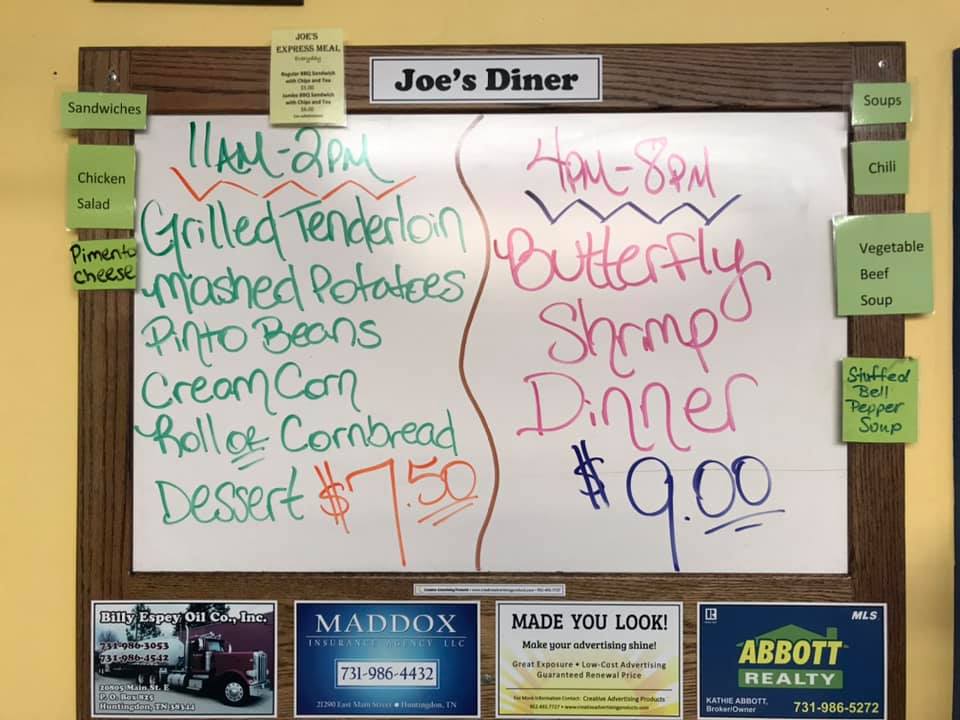 JOE'S
EXPRESS MEAL
Everyday
Regular BBQ Sandwich
with Chips and Tea
$5.00
Jumbo BBQ Sandwich
with Chips and Tea
$6.00
Joe's Diner
Sandwiches
Chicken
Salad
Pimento
Cheese
11AM-2PM
Grilled Tenderloin
Mashed Potatoes
Pinto Beans
Cream Corn
Roll or Cornbread
Dessert $7.50
4PM-8PM
Butterfly
Shrimp
Dinner
$9.00
Soups
Chili
Vegetable
Beef
Soup
Stuffed
Bell
Pepper
Soup
Billy Espey Oil Co., Inc.
731-986-3053
731-986-4542
20805 Main St. E
P. O. Box 825
Huntingdon, TN 38344
MADDOX
INSURANCE AGENCY LLC
731-986-4432
21290 East Main Street • Huntingdon, TN
MADE YOU LOOK!
Make your advertising shine!
Great Exposure • Low-Cost Advertising
Guaranteed Renewal Price
For More Information Contact: Creative Advertising Products
MLS
ABBOTT
REALTY
KATHIE ABBOTT,
Broker/Owner
731-986-5272